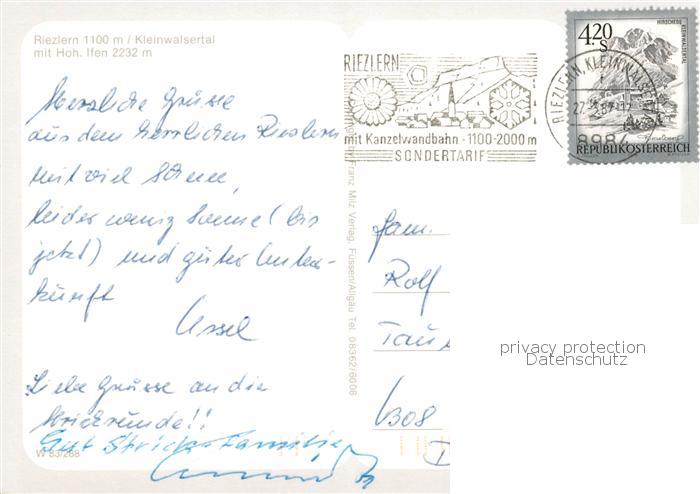 Riezlern 1100 m / Kleinwalsertal
mit Hoh. Ifen 2232 m
Herzliche Grüsse
aus dem herrlichen Riezlern
mit viel Schnee,
leider wenig Sonne (bis
jetzt) und guter Unter-
kunft
Ursel
Liebe Grüsse an die
Strickrunde!!
Gut Strick
W 83/268
by Franz Milz Verlag, Füssen/Allgäu Tel. 08362/6008
RIEZLERN
mit Kanzelwandbahn · 1100-2000 m
SONDERTARIF
RIEZLERN, KLEINWALSERTAL
4.20
S
HIRSCHEGG
KLEINWALSERTAL
REPUBLIK ÖSTERREICH
Fam.
Rolf
privacy protection
Datenschutz